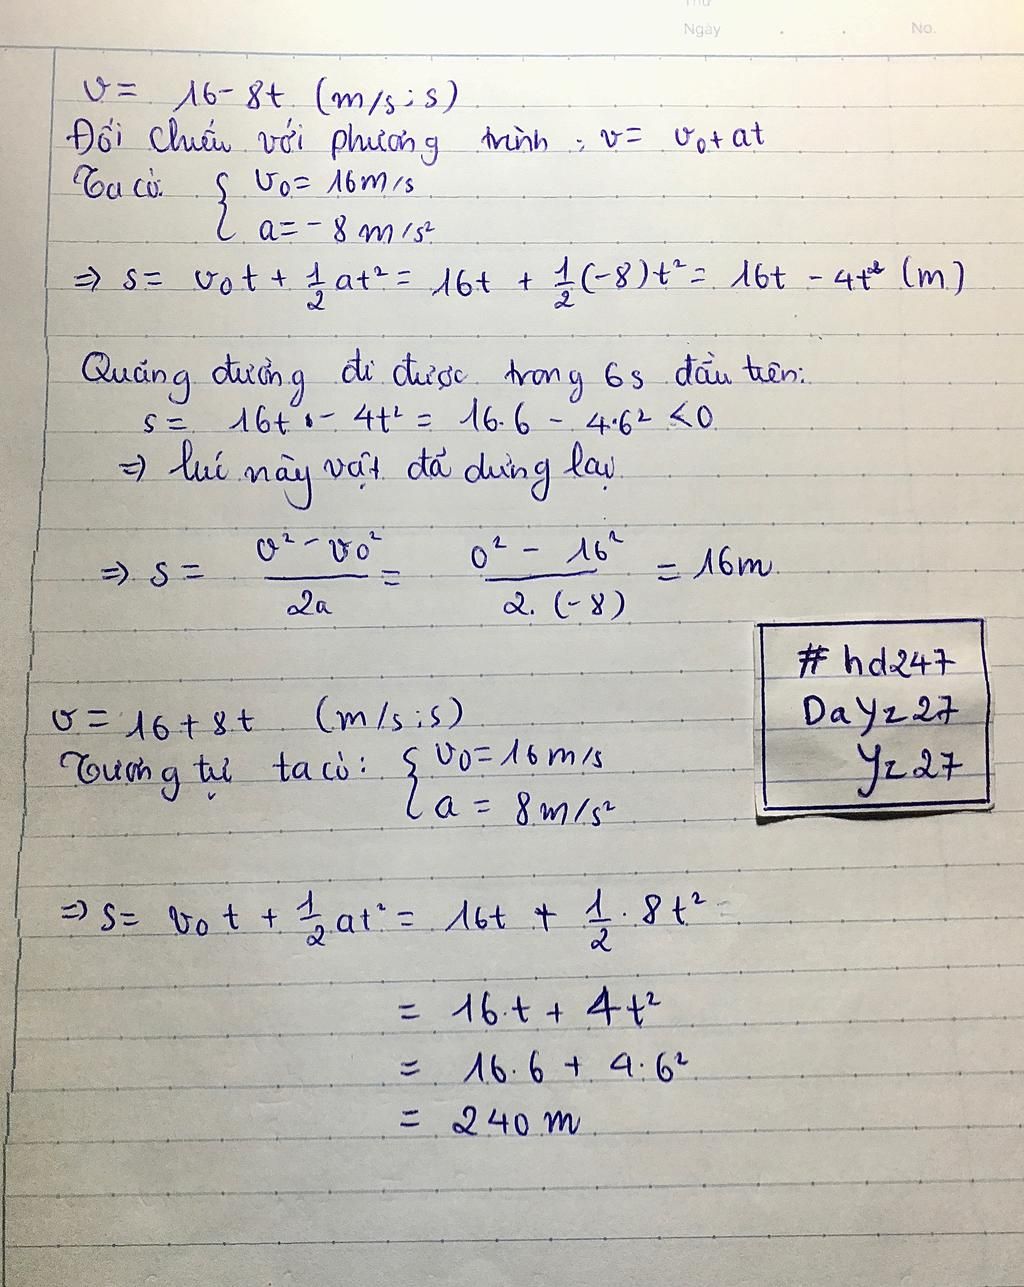 Thứ
Ngày . . No.
v = 16 - 8t (m/s; s)
Đối chiếu với phương trình: v = v₀ + at
Ta có: { v₀ = 16m/s
a = -8 m/s²
⇒ s = v₀t + 1/2 at² = 16t + 1/2 (-8)t² = 16t - 4t² (m)
Quãng đường đi được trong 6s đầu tiên:
s = 16t - 4t² = 16.6 - 4.6² < 0
⇒ lúc này vật đã dừng lại
⇒ s = (v² - v₀²)/2a = (0² - 16²)/(2.(-8)) = 16m
# hd247
DaYz27
Yz27
v = 16 + 8t (m/s; s)
Tương tự ta có: { v₀ = 16m/s
a = 8m/s²
⇒ s = v₀t + 1/2 at² = 16t + 1/2 . 8t² =
= 16.t + 4t²
= 16.6 + 4.6²
= 240m